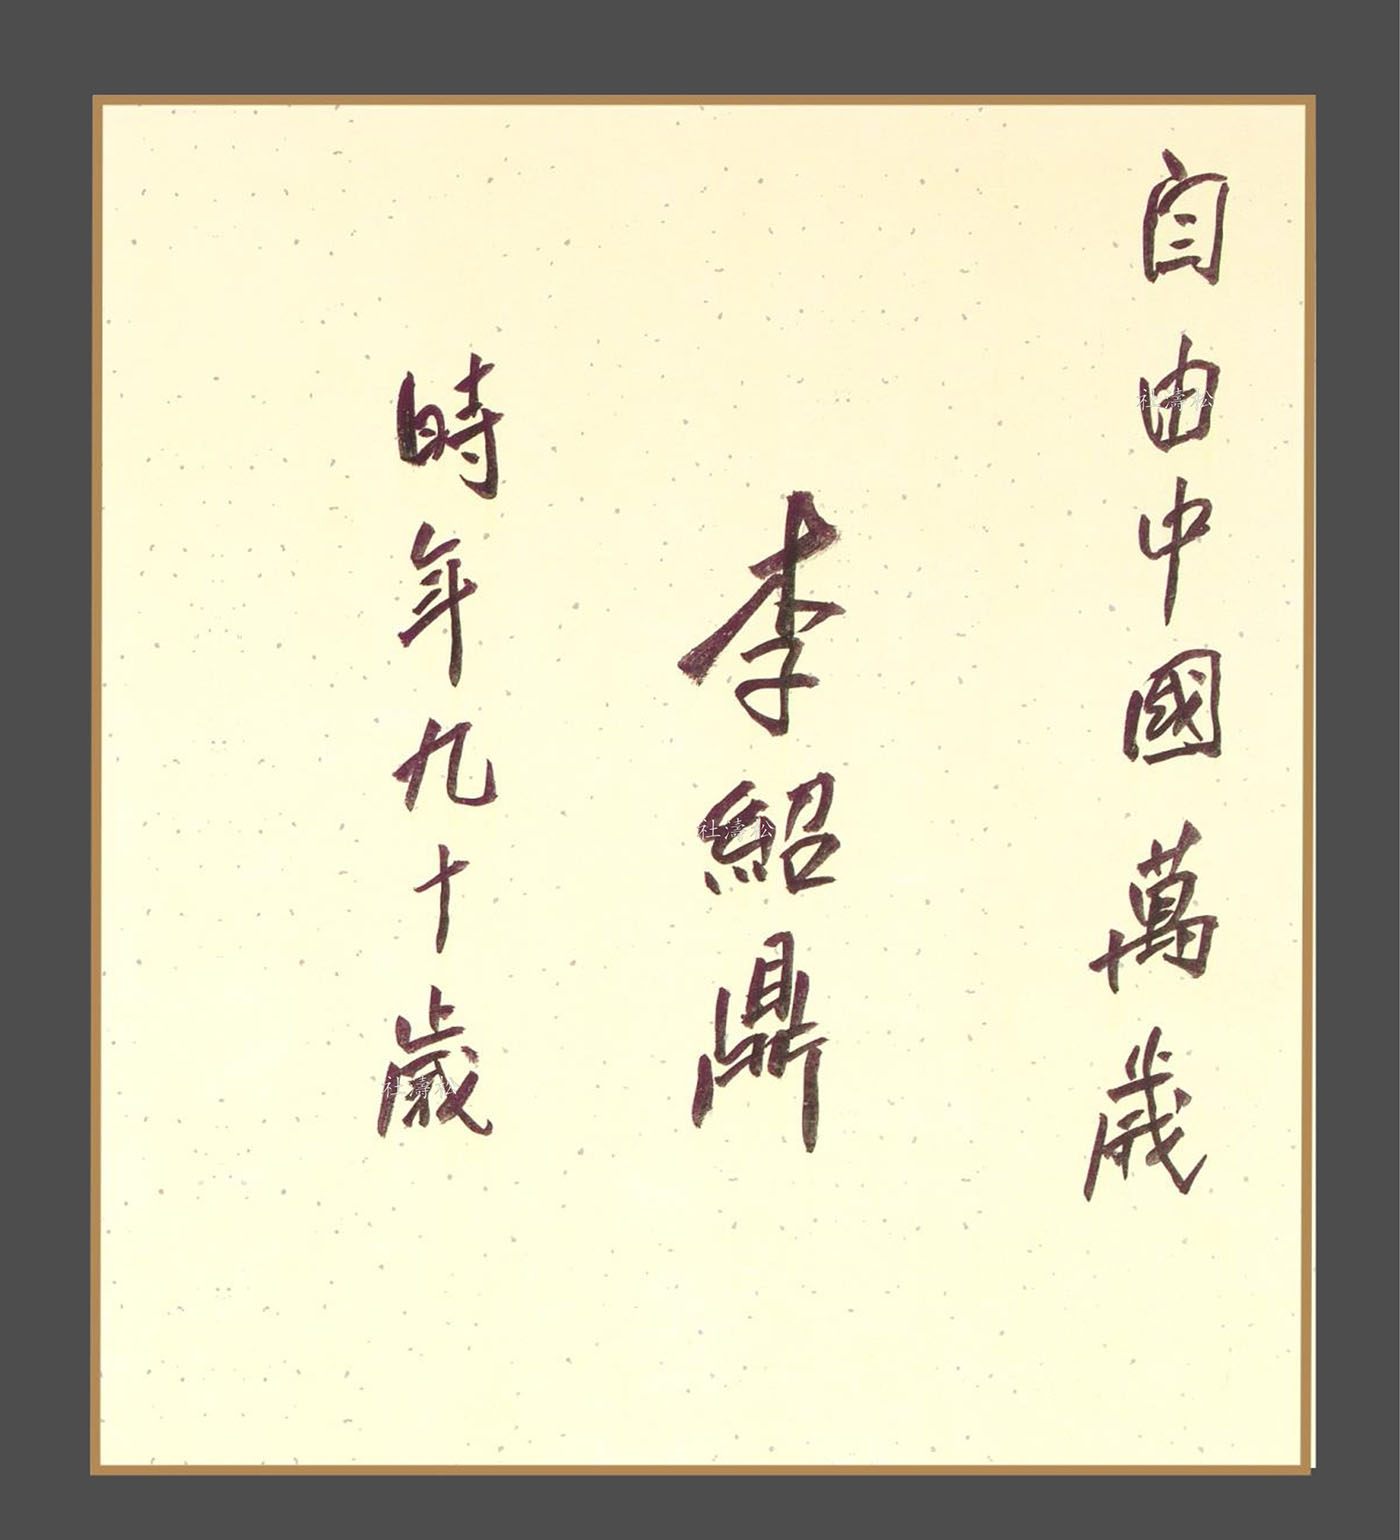 自由中國萬歲
李紹鼎
時年九十歲
松濤社
松濤社
松濤社